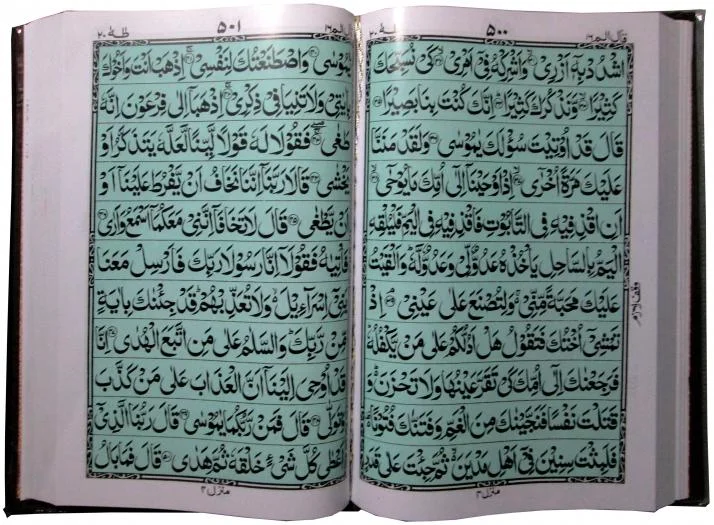 قال الم ١٦
٥٠٠
طٰهٰ ٢٠
اشْدُدْ بِهٖۤ اَزْرِيْ ۙ۳۱ وَاَشْرِكْهُ فِيْۤ اَمْرِيْ ۙ۳۲ كَيْ نُسَبِّحَكَ
كَثِيْرًا ۙ۳۳ وَّنَذْكُرَكَ كَثِيْرًا ۭ۳۴ اِنَّكَ كُنْتَ بِنَا بَصِيْرًا ۳۵
قَالَ قَدْ اُوْتِيْتَ سُؤْلَكَ يٰمُوْسٰى ۳۶ وَلَقَدْ مَنَنَّا
عَلَيْكَ مَرَّةً اُخْرٰۤى ۙ۳۷ اِذْ اَوْحَيْنَاۤ اِلٰۤى اُمِّكَ مَا يُوْحٰۤى ۙ۳۸
اَنِ اقْذِفِيْهِ فِي التَّابُوْتِ فَاقْذِفِيْهِ فِي الْيَمِّ فَلْيُلْقِهِ
الْيَمُّ بِالسَّاحِلِ يَاْخُذْهُ عَدُوٌّ لِّيْ وَعَدُوٌّ لَّهٗ ؕ وَاَلْقَيْتُ
عَلَيْكَ مَحَبَّةً مِّنِّيْ ۚ۬ وَلِتُصْنَعَ عَلٰى عَيْنِيْ ۘ۳۹ اِذْ
تَمْشِيْۤ اُخْتُكَ فَتَقُوْلُ هَلْ اَدُلُّكُمْ عَلٰى مَنْ يَّكْفُلُهٗ ؕ
فَرَجَعْنٰكَ اِلٰۤى اُمِّكَ كَيْ تَقَرَّ عَيْنُهَا وَلَا تَحْزَنَ ؕ۬ وَ
قَتَلْتَ نَفْسًا فَنَجَّيْنٰكَ مِنَ الْغَمِّ وَفَتَنّٰكَ فُتُوْنًا ۬۫
فَلَبِثْتَ سِنِيْنَ فِيْۤ اَهْلِ مَدْيَنَ ۬ۙ ثُمَّ جِئْتَ عَلٰى قَدَرٍ
منزل ٤
قال الم ١٦
٥٠١
طٰهٰ ٢٠
يّٰمُوْسٰى ۴۰ وَاصْطَنَعْتُكَ لِنَفْسِيْ ۚ۴۱ اِذْهَبْ اَنْتَ وَاَخُوْكَ
بِاٰيٰتِيْ وَلَا تَنِيَا فِيْ ذِكْرِيْ ۚ۴۲ اِذْهَبَاۤ اِلٰى فِرْعَوْنَ اِنَّهٗ
طَغٰى ۚۖ۴۳ فَقُوْلَا لَهٗ قَوْلًا لَّيِّنًا لَّعَلَّهٗ يَتَذَكَّرُ اَوْ
يَخْشٰى ۴۴ قَالَا رَبَّنَاۤ اِنَّنَا نَخَافُ اَنْ يَّفْرُطَ عَلَيْنَاۤ اَوْ
اَنْ يَّطْغٰى ۴۵ قَالَ لَا تَخَافَاۤ اِنَّنِيْ مَعَكُمَاۤ اَسْمَعُ وَاَرٰى ۴۶
فَاْتِيٰهُ فَقُوْلَاۤ اِنَّا رَسُوْلَا رَبِّكَ فَاَرْسِلْ مَعَنَا
بَنِيْۤ اِسْرَآءِيْلَ ۬ۙ وَلَا تُعَذِّبْهُمْ ؕ قَدْ جِئْنٰكَ بِاٰيَةٍ
مِّنْ رَّبِّكَ ؕ وَالسَّلٰمُ عَلٰى مَنِ اتَّبَعَ الْهُدٰى ۴۷ اِنَّا
قَدْ اُوْحِيَ اِلَيْنَاۤ اَنَّ الْعَذَابَ عَلٰى مَنْ كَذَّبَ
وَتَوَلّٰى ۴۸ قَالَ فَمَنْ رَّبُّكُمَا يٰمُوْسٰى ۴۹ قَالَ رَبُّنَا الَّذِيْۤ
اَعْطٰى كُلَّ شَيْءٍ خَلْقَهٗ ثُمَّ هَدٰى ۵۰ قَالَ فَمَا بَالُ
منزل ٤